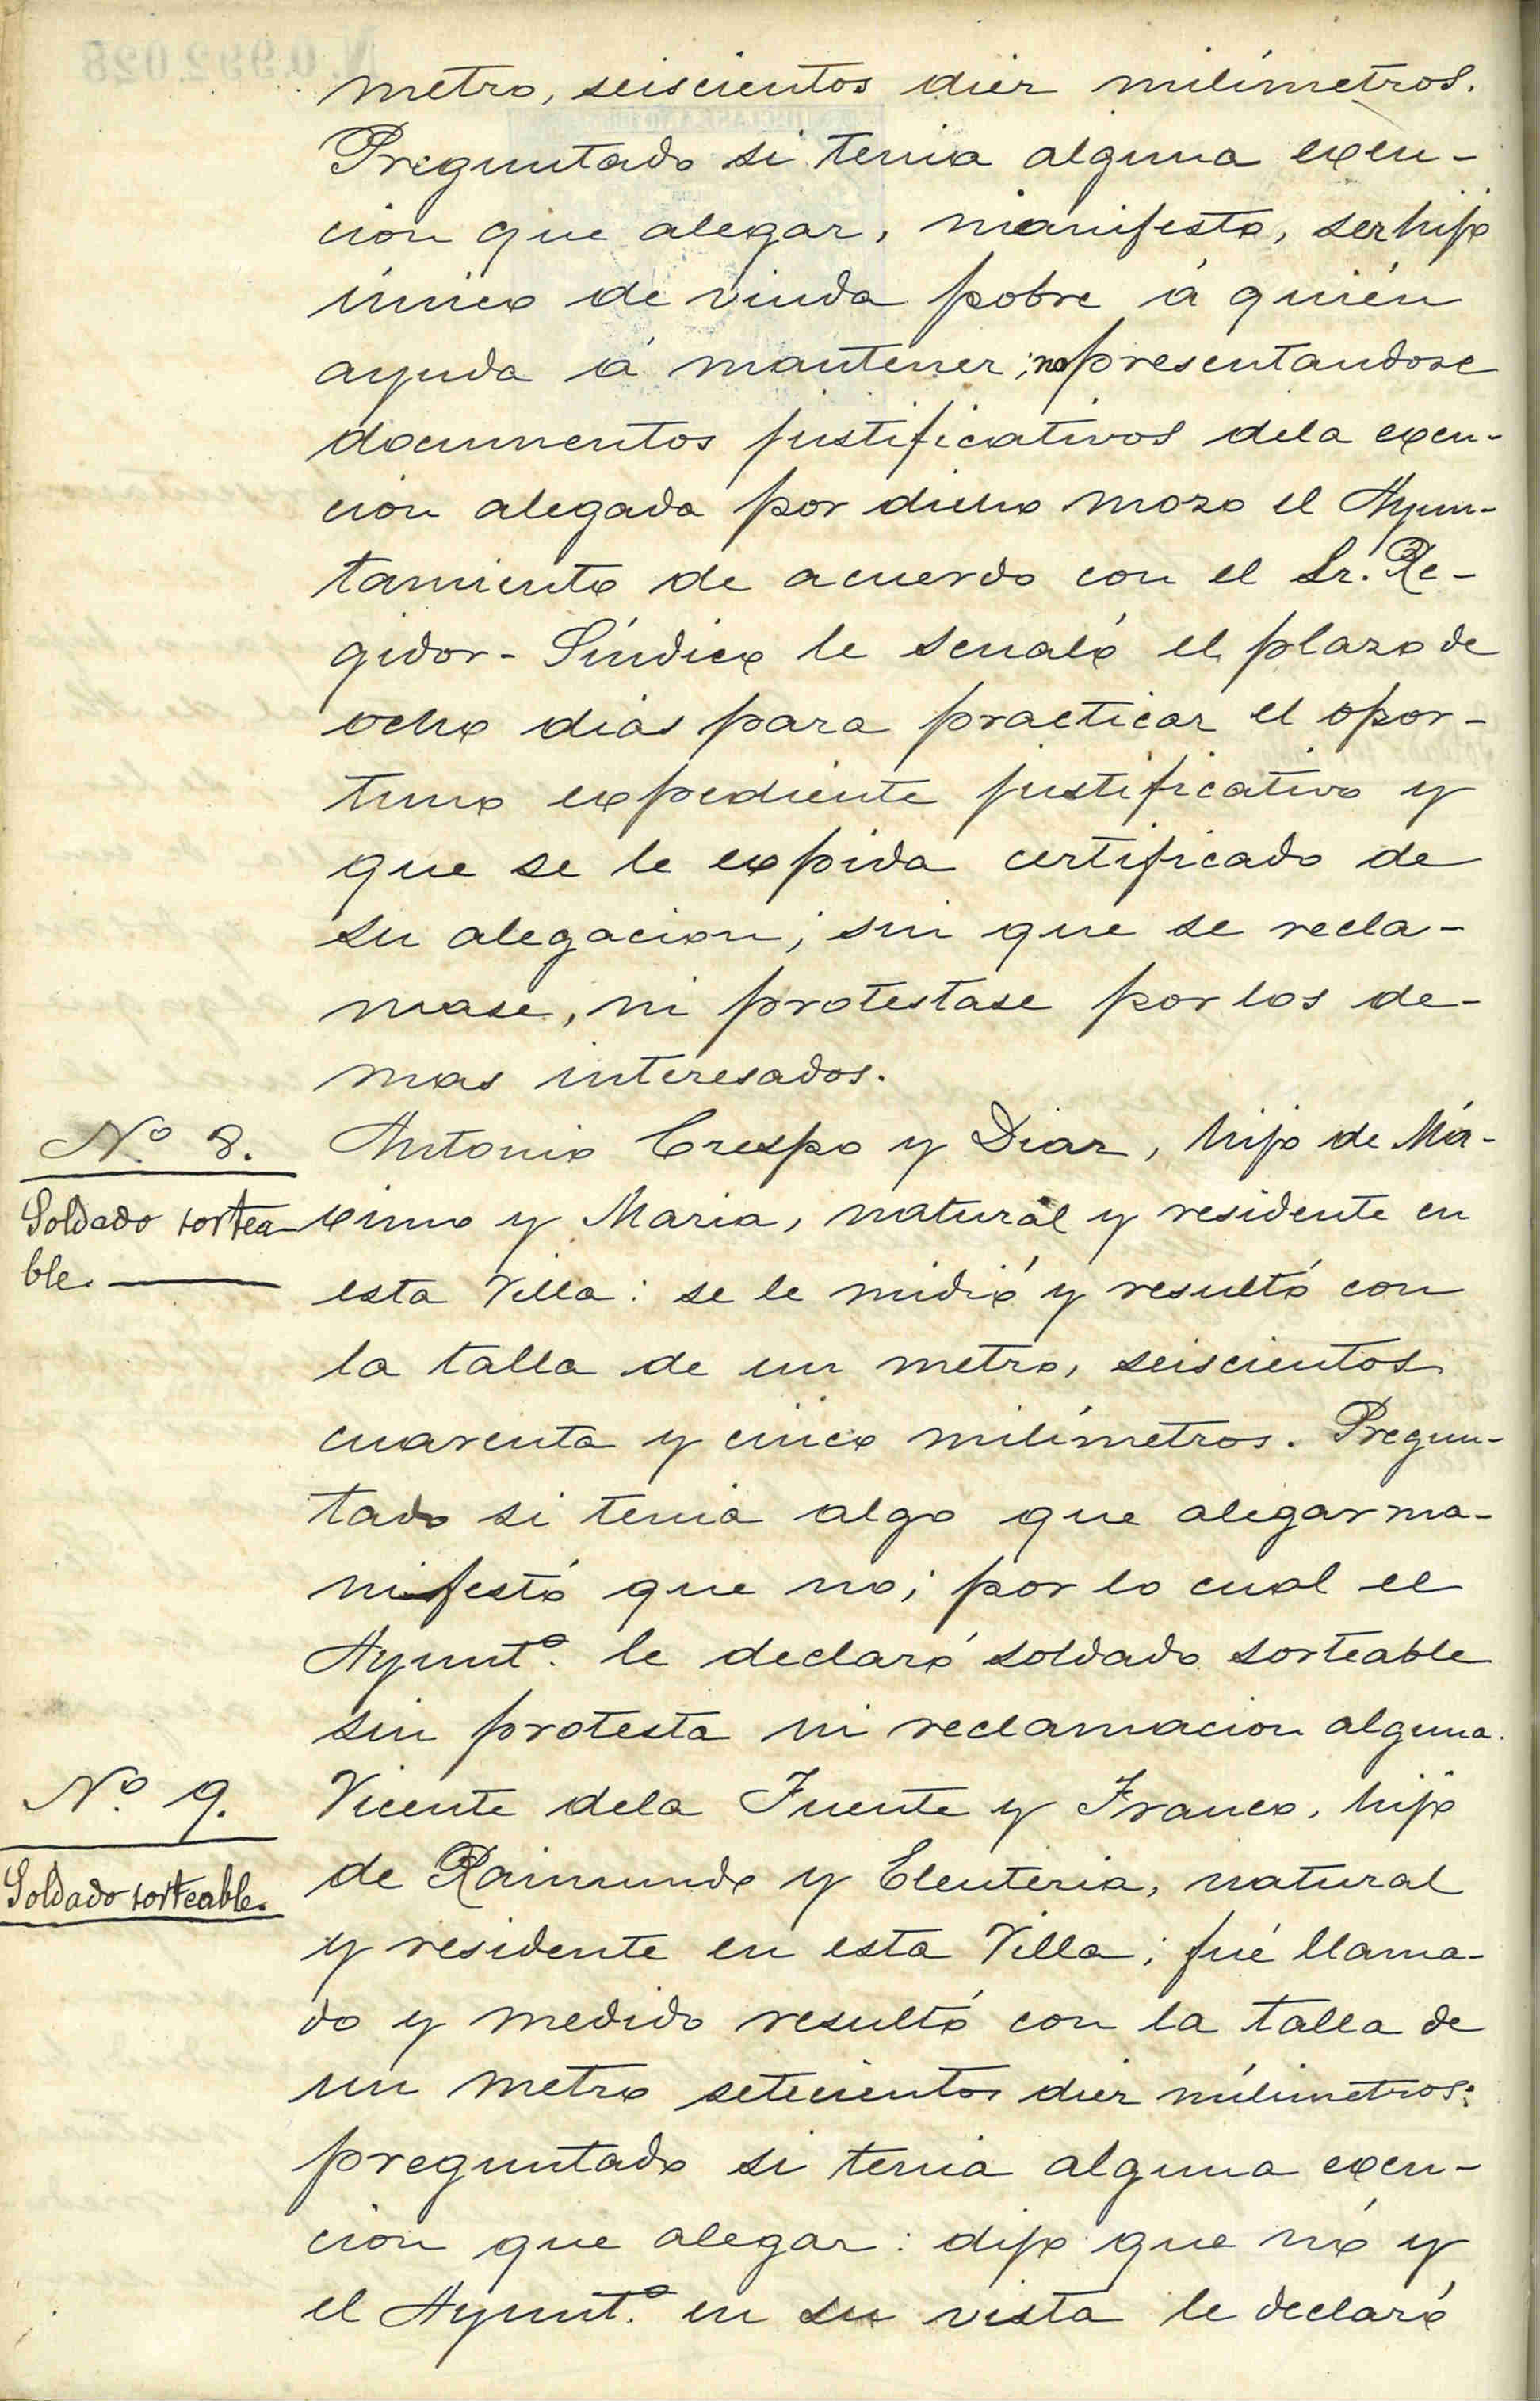 metro, seiscientos diez milímetros.
Preguntado si tenia alguna exen-
cion que alegar, manifesto, ser hijo
único de viuda pobre á quién
ayuda á mantener; no presentandose
documentos justificativos dela exen-
cion alegada por dicho mozo el Ayun-
tamiento de acuerdo con el Sr. Re-
gidor-Síndico le senaló el plazo de
ocho dias para practicar el opor-
tuno expediente justificativo y
que se le expida certificado de
su alegacion; sin que se recla-
mase, ni protestase por los de-
mas interesados.
Nº 8.
Soldado sortea-
ble.
Antonio Crespo y Diaz, hijo de Má-
ximo y Maria, natural y residente en
esta Villa: se le midió y resultó con
la talla de un metro, seiscientos
cuarenta y cinco milímetros. Pregun-
tado si tenia algo que alegar ma-
nifestó que no; por lo cual el
Ayuntº. le declaró soldado sorteable
sin protesta ni reclamacion alguna.
Nº 9.
Soldado sorteable.
Vicente dela Fuente y Franco, hijo
de Raimundo y Eleuteria, natural
y residente en esta Villa; fué llama-
do y medido resultó con la talla de
un metro setecientos diez milímetros:
preguntado si tenia alguna exen-
cion que alegar: dijo que nó y
el Ayuntº. en su vista le declaró